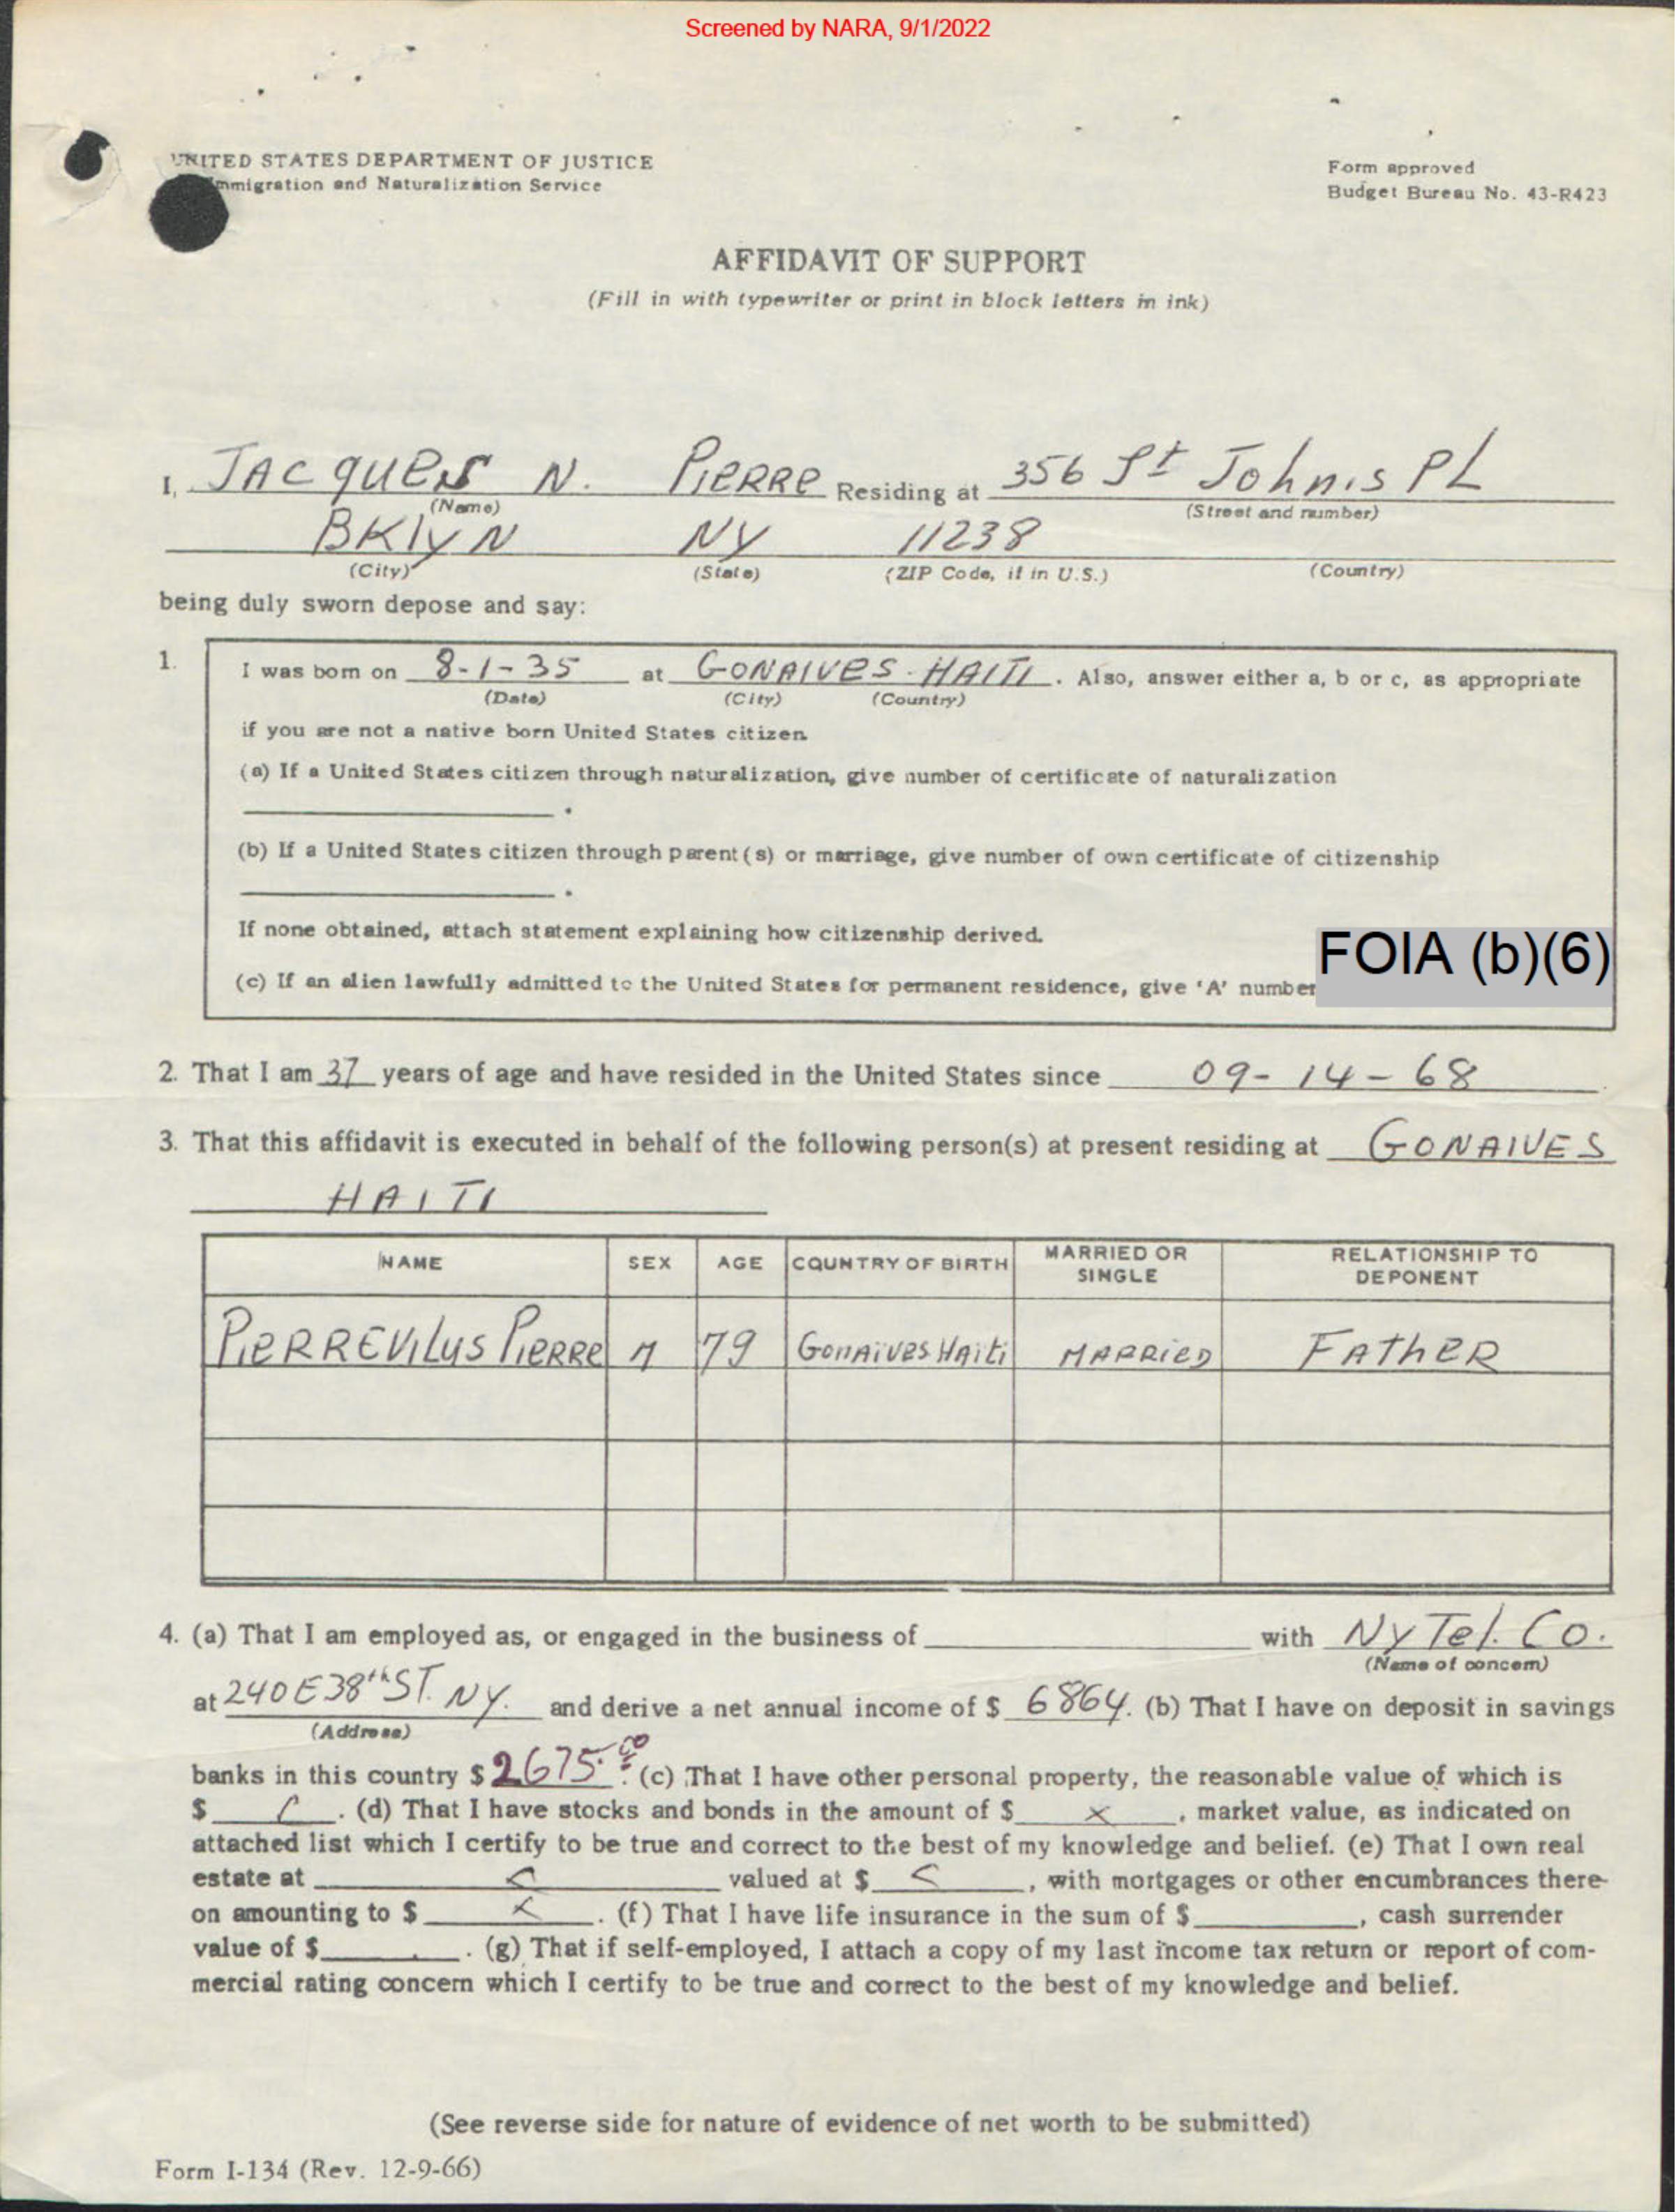 Screened by NARA, 9/1/2022
UNITED STATES DEPARTMENT OF JUSTICE
Immigration and Naturalization Service
Form approved
Budget Bureau No. 43-R423
AFFIDAVIT OF SUPPORT
(Fill in with typewriter or print in block letters in ink)
I, JACQUES N. PIERRE Residing at 356 St John's PL
(Name) (Street and number)
BKLYN NY 11238
(City) (State) (ZIP Code, if in U.S.) (Country)
being duly sworn depose and say:
1. I was born on 8-1-35 at GONAIVES - HAITI. Also, answer either a, b or c, as appropriate
(Date) (City) (Country)
if you are not a native born United States citizen.
(a) If a United States citizen through naturalization, give number of certificate of naturalization
.
(b) If a United States citizen through parent(s) or marriage, give number of own certificate of citizenship
.
If none obtained, attach statement explaining how citizenship derived.
FOIA (b)(6)
(c) If an alien lawfully admitted to the United States for permanent residence, give 'A' number
2. That I am 37 years of age and have resided in the United States since 09-14-68.
3. That this affidavit is executed in behalf of the following person(s) at present residing at GONAIVES
HAITI
NAME SEX AGE COUNTRY OF BIRTH MARRIED OR SINGLE RELATIONSHIP TO DEPONENT
PIERREVILUS PIERRE M 79 Gonaives Haiti MARRIED FATHER
4. (a) That I am employed as, or engaged in the business of with NY Tel. Co.
(Name of concern)
at 240 E 38th ST. NY. and derive a net annual income of $ 6864. (b) That I have on deposit in savings
(Address)
banks in this country $ 2675.00. (c) That I have other personal property, the reasonable value of which is
$ . (d) That I have stocks and bonds in the amount of $ x , market value, as indicated on
attached list which I certify to be true and correct to the best of my knowledge and belief. (e) That I own real
estate at valued at $ , with mortgages or other encumbrances there-
on amounting to $ . (f) That I have life insurance in the sum of $ , cash surrender
value of $ . (g) That if self-employed, I attach a copy of my last income tax return or report of com-
mercial rating concern which I certify to be true and correct to the best of my knowledge and belief.
(See reverse side for nature of evidence of net worth to be submitted)
Form I-134 (Rev. 12-9-66)